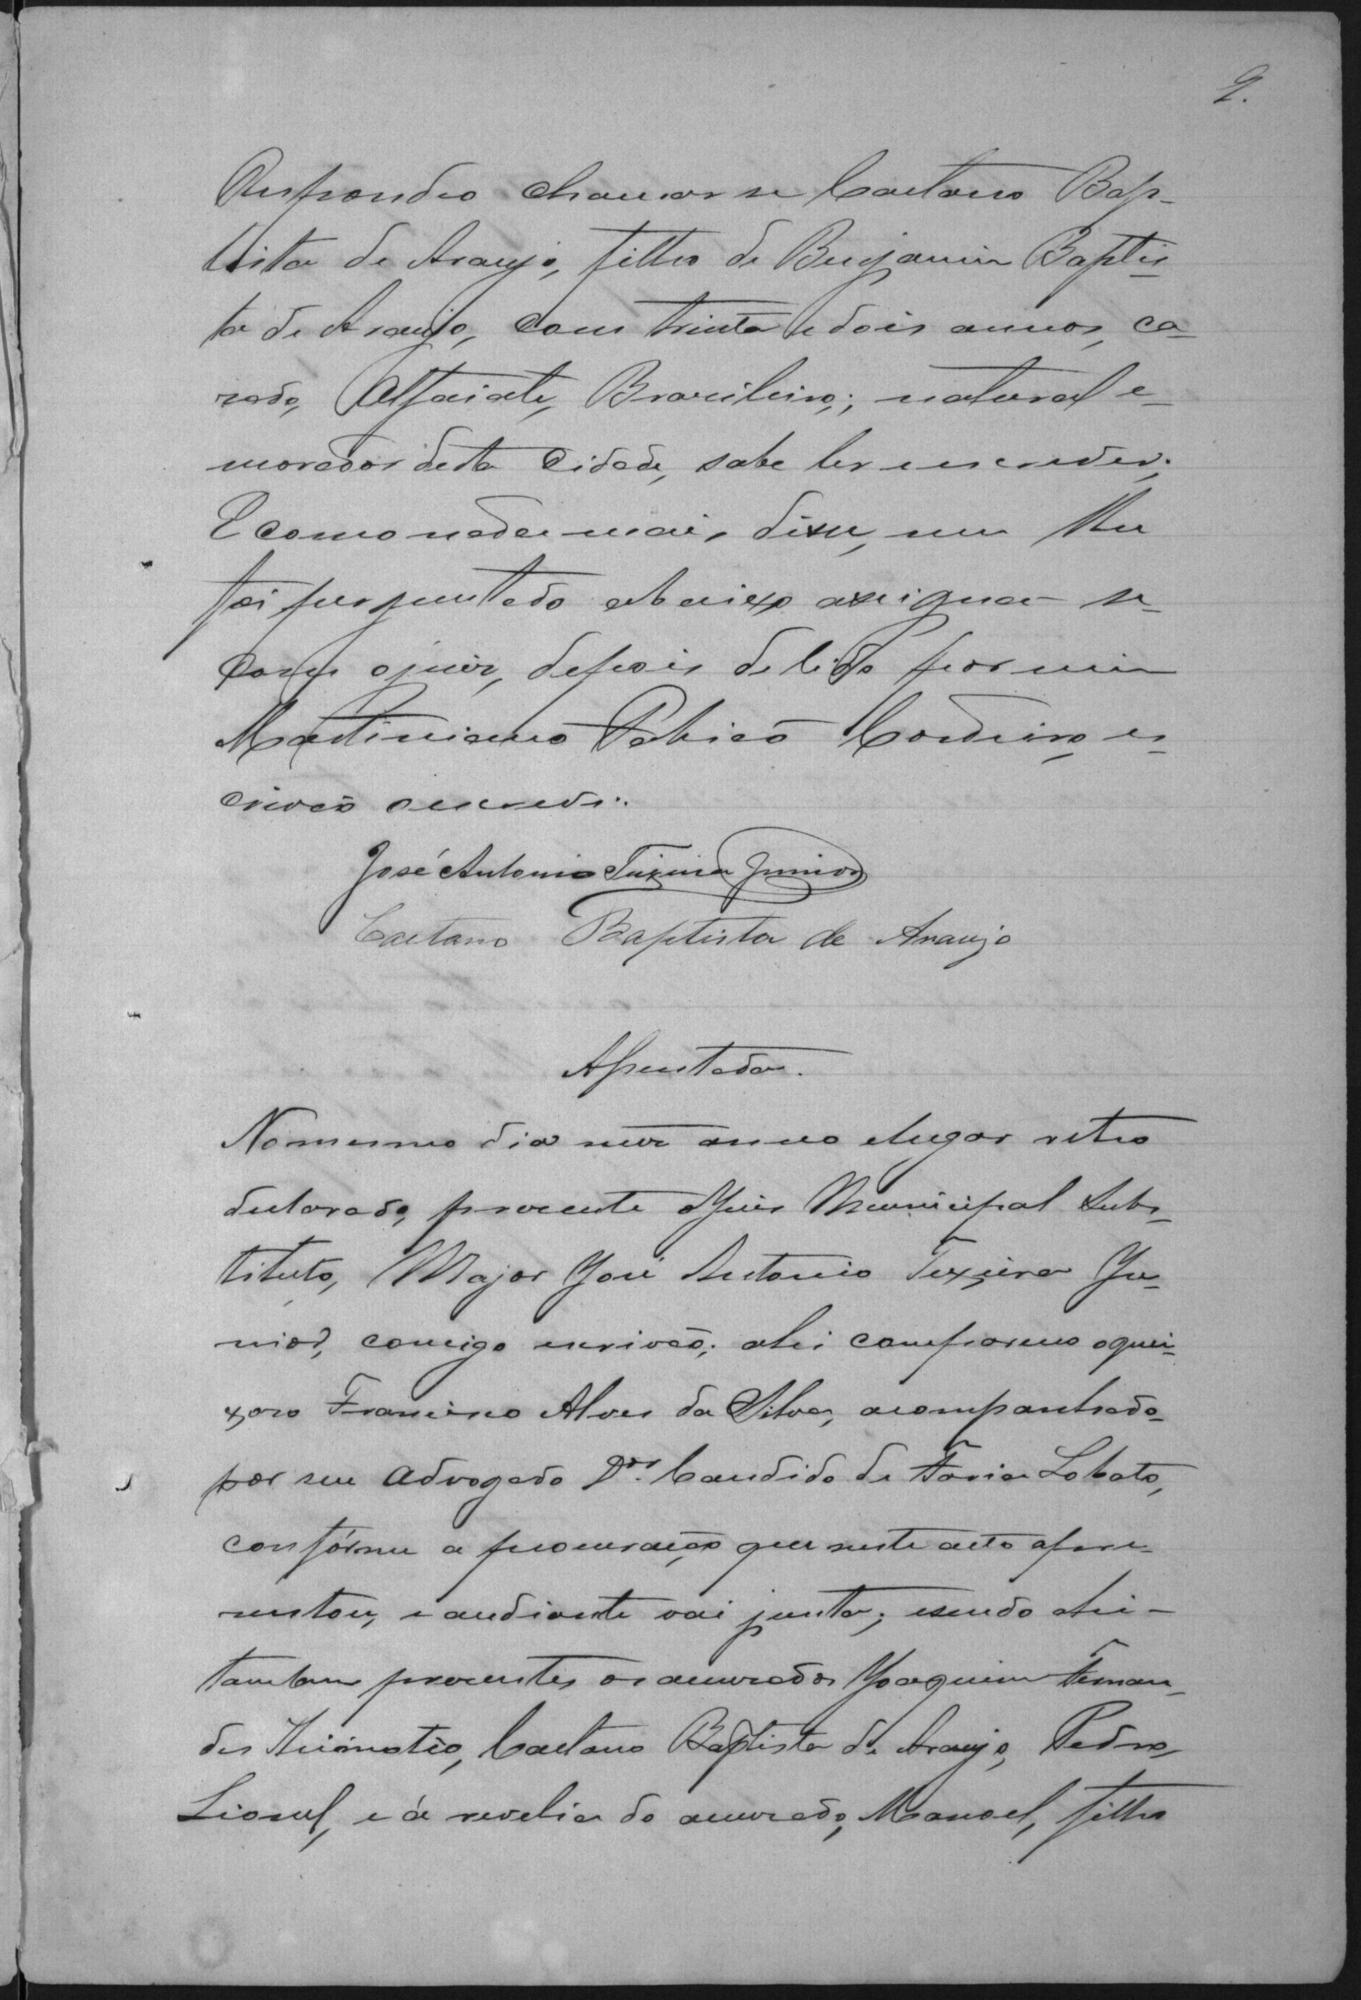 9.
Respondeo chamar se Caetano Bap-
tista de Araujo, filho de Benjamin Baptis-
ta de Araujo, com trinta e dois annos, ca-
sado, Alfaiate, Brazileiro; natural e-
morador desta Cidade, sabe ler e escrever;
E como nada mais disse, nem lhe
foi perguntado abaixo assigna - se
com o juiz, depois de lido por mim
Martiniano Patricio Cordeiro, es-
crivão o escrevi.
José Antonio Teixeira Junior
Caetano Baptista de Araujo
Assentada.
No mesmo dia mez anno e lugar retro
declarado, presente o Juiz Municipal Subs-
tituto, Major José Antonio Teixeira Ju-
nior, comigo escrivão; ahi compareceo o quei-
xoso Francisco Alves da Silva, acompanhado-
por seu Advogado Dor. Candido de Faria Lobato,
confórme a procuração que neste acto apre-
sentou, e andiante vai junta; esendo ahi -
tambem presentes os accusados Joaquim Fernan-
des, Caetano Baptista de Araujo, Pedro,
Lionel, e á revelia do accusado, Manoel, filho